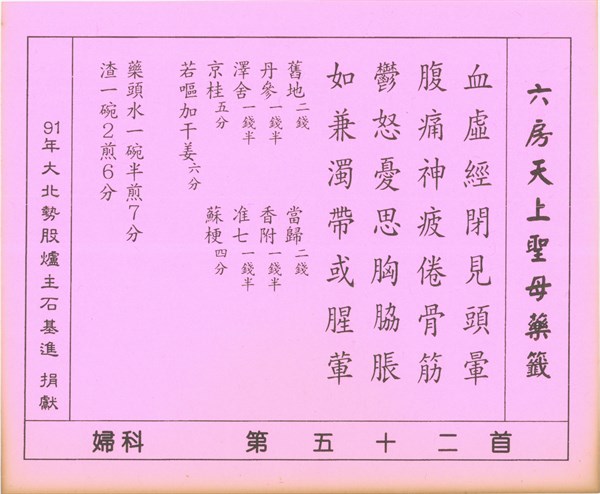 六房天上聖母藥籤
血虛經閉見頭暈
腹痛神疲倦骨筋
鬱怒憂思胸脇脹
如兼濁帶或腥葷
舊地二錢 當歸二錢
丹參一錢半 香附一錢半
澤舍一錢半 准七一錢半
京桂五分 蘇梗四分
若嘔加干姜六分
藥頭水一碗半煎7分
渣一碗2煎6分
91年大北勢股爐主石基進 捐獻
婦科 第五十二首